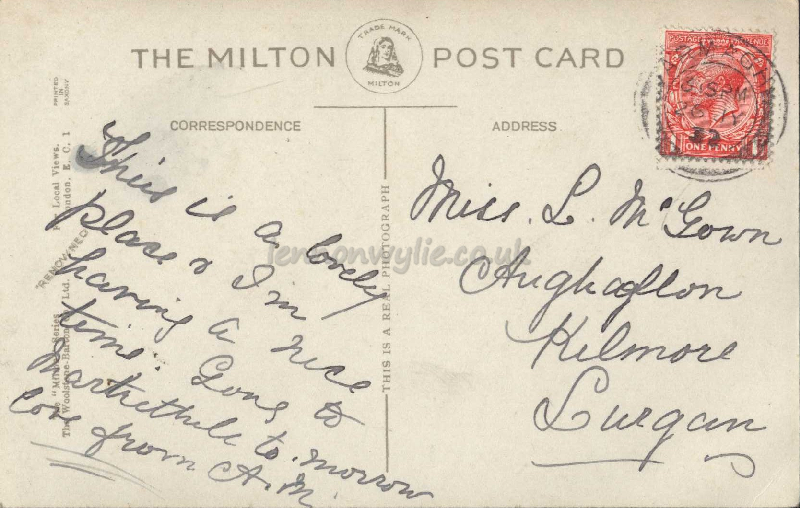 THE MILTON POST CARD
TRADE MARK
MILTON
CORRESPONDENCE
ADDRESS
This is a lovely
place & I'm
having a nice
time. Gong to
to morrow
love from A.M.
Miss. L. McGown
Kilmore
Lurgan
THIS IS A REAL PHOTOGRAPH
PRINTED IN SAXONY
For Local Views.
London. E. C. 1
RENOWNED
The "Milton" Series
Ltd.
POSTAGE
ONE PENNY
3.15 PM
lennonwylie.co.uk